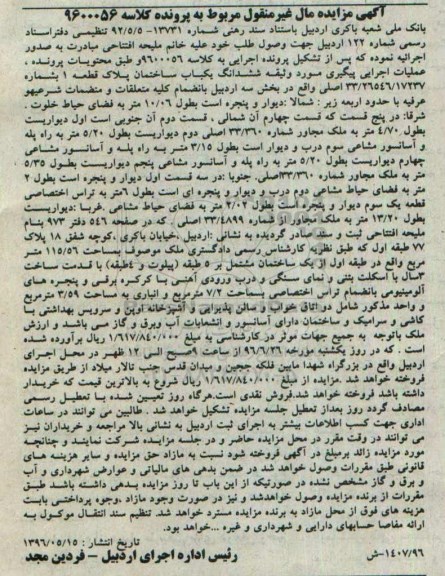 آگهی مزایده مال غیرمنقول مربوط به پرونده کلاسه ۹۶۰۰۰۵۶
بانک ملی شعبه باکری اردبیل باستناد سند رهنی شماره ۱۳۷۳۱- ۹۲/۵/۵ تنظیمی دفتراسناد
رسمی شماره ۱۲۲ اردبیل جهت وصول طلب خود علیه خانم ملیحه افتتاحی مبادرت به صدور
اجرائیه نموده که پس از تشکیل پرونده اجرایی به کلاسه ۹۶۰۰۰۵۶ و طبق محتویات پرونده ،
عملیات اجرایی پیگیری مورد وثیقه ششدانگ یکباب ساختمان پلاک قطعه ۱ بشماره
۳۳/۲۶۵۴۶/۱۷۲۳۷ اصلی واقع در بخش سه اردبیل بانضمام کلیه متعلقات و منضمات شرعیهو
عرفیه با حدود اربعه زیر : شمالا :دیوار و پنجره است بطول ۱۰/۰۶ متر به فضای حیاط خلوت .
شرقا: در پنج قسمت که قسمت چهارم آن شمالی ، قسمت دوم آن جنوبی است اول دیواریست
بطول ۴/۷۰ متر به ملک مجاور شماره ۳۳/۳۶۰ اصلی دوم دیواریست بطول ۵/۲۰ متر به راه پله
و آسانسور مشاعی سوم درب و دیوار است بطول ۳/۱۵ متر به راه پله و آسانسور مشاعی
چهارم دیواریست بطول ۵/۲۰ متر به راه پله و آسانسور مشاعی پنجم دیواریست بطول ۵/۳۵
متر به ملک مجاور شماره ۳۳/۳۶۰اصلی. جنوبا :در سه قسمت اول دیوار و پنجره است بطول ۲
متر به فضای حیاط مشاعی دوم درب و دیوار و پنجره ای است بطول ۶متر به تراس اختصاصی
قطعه یک سوم دیوار و پنجره است بطول ۲/۰۲ متر به فضای حیاط مشاعی .غربا :دیواریست
بطول ۱۳/۲۰ متر به ملک مجاور از شماره ۳۳/۴۸۹۹ اصلی ، که در صفحه ۵۴۶ دفتر ۹۷۳ بنام
ملیحه افتتاحی ثبت و سند صادر گردیده به نشانی :اردبیل .خیابان باکری .کوچه شفق ۱۸ پلاک
۷۷ طبقه اول که طبق نظریه کارشناس رسمی دادگستری ملک موصوف بمساحت ۱۱۵/۵۶ متر
مربع واقع در طبقه اول از یک ساختمان مشتمل بر ۵ طبقه (پیلوت و ۴طبقه) با قدمت ساخت
۳سال با اسکلت بتنی و نمای سنگی و درب ورودی آهنی با کرکره برقی و پنجره های
آلومینیومی بانضمام تراس اختصاصی بمساحت ۷/۲ مترمربع و انباری به مساحت ۳/۵۹ مترمربع
و واحد مذکور شامل دو اتاق خواب و سالن پذیرایی و آشپزخانه اوپن و سرویس بهداشتی با
کاشی و سرامیک و ساختمان دارای آسانسور و انشعابات آب وبرق و گاز می باشد و ارزش
ملک باتوجه به جمیع جهات موثر در کارشناسی به مبلغ ۱/۶۱۷/۸۴۰/۰۰۰ ریال برآورده شده
است . که در روز یکشنبه مورخه ۹۶/۶/۲۶ از ساعت ۹صبح الی ۱۲ ظهر در محل اجرای
اردبیل واقع در بزرگراه شهدا مابین فلکه ججین و میدان قدس جنب تالار میلاد از طریق مزایده
فروخته خواهد شد .مزایده از مبلغ ۱/۶۱۷/۸۴۰/۰۰۰ ریال شروع به بالاترین قیمت که خریدار
داشته باشد فروخته خواهد شد.فروش نقدی است.هرگاه روز تعیین شده با تعطیل رسمی
مصادف گردد روز بعداز تعطیل جلسه مزایده تشکیل خواهد شد . طالبین می توانند در ساعات
اداری جهت کسب اطلاعات بیشتر به اجرای ثبت اردبیل به نشانی بالا مراجعه و خریداران نیز
می توانند در وقت مقرر در محل مزایده حاضر و در جلسه مزایده شرکت نمایند و چنانچه
مورد مزایده زائد برمبلغ در آگهی فروخته شود نسبت به مازاد حق مزایده و سایر هزینه های
قانونی طبق مقررات وصول خواهد شد در ضمن بدهی های مالیاتی و عوارض شهرداری و آب
و برق و گاز مشخص نشده در صورتیکه از این باب تا روز مزایده بدهی داشته باشد طبق
مقررات از برنده مزایده وصول خواهدشد و نیز در صورت وجود مازاد ،وجوه پرداختی بابت
هزینه های فوق از محل مازاد به برنده مزایده مسترد خواهد شد. تنظیم سند انتقال موکول به
ارائه مفاصا حسابهای دارایی و شهرداری و غیره ...خواهد بود.
تاریخ انتشار : ۱۳۹۶/۰۵/۱۵
رئیس اداره اجرای اردبیل – فردین مجد
۱۴۰۷/۹۶-ش